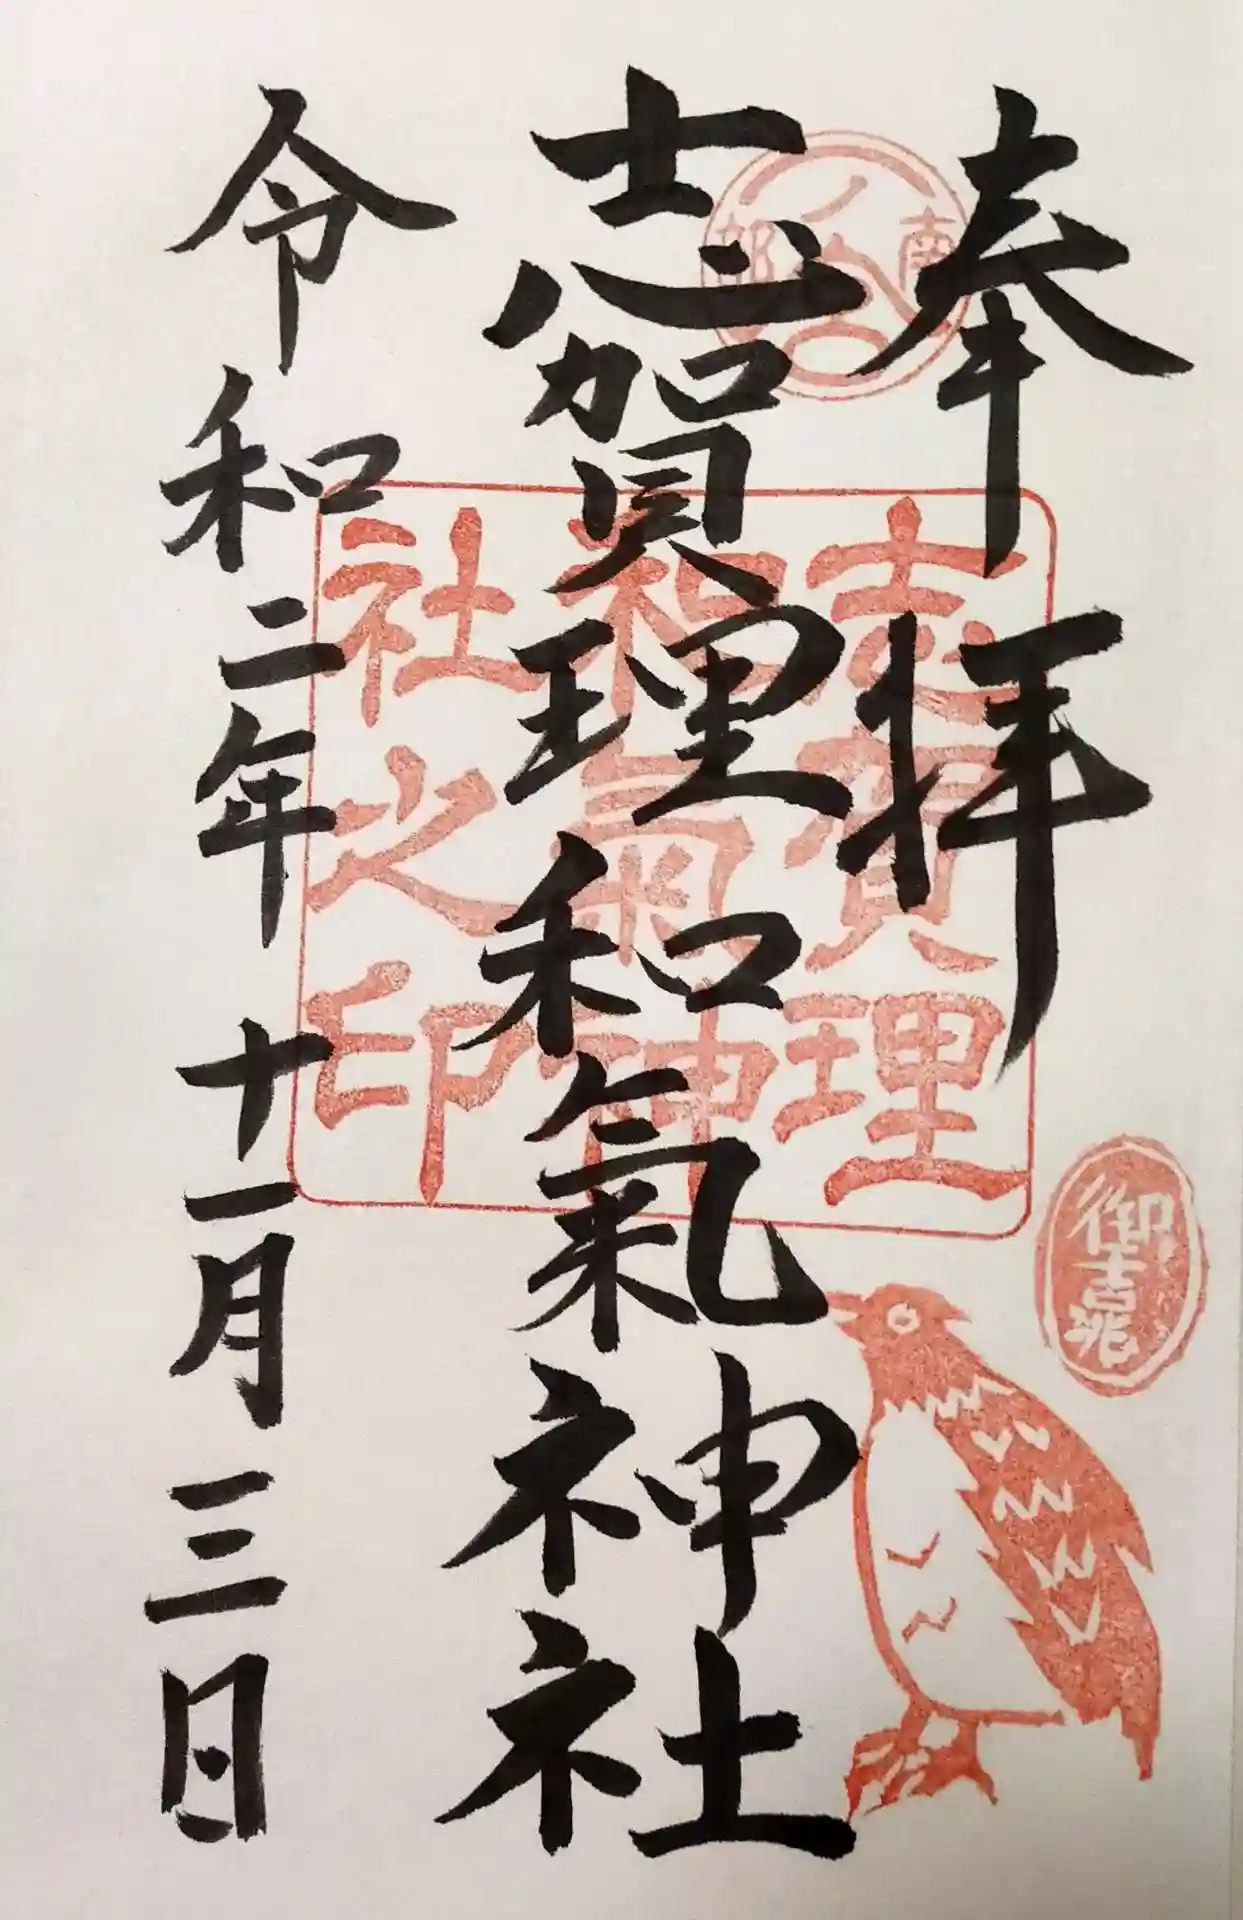 奉拝
志賀理和氣神社
令和二年十一月三日
南部一ノ宮
志賀理
和氣神
社之印